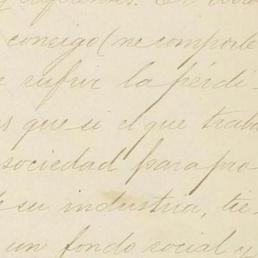 consigo (ne comporte
sufrir la pérdi-
que si el que traba
sociedad para pro
su industria, tie-
un fondo social y